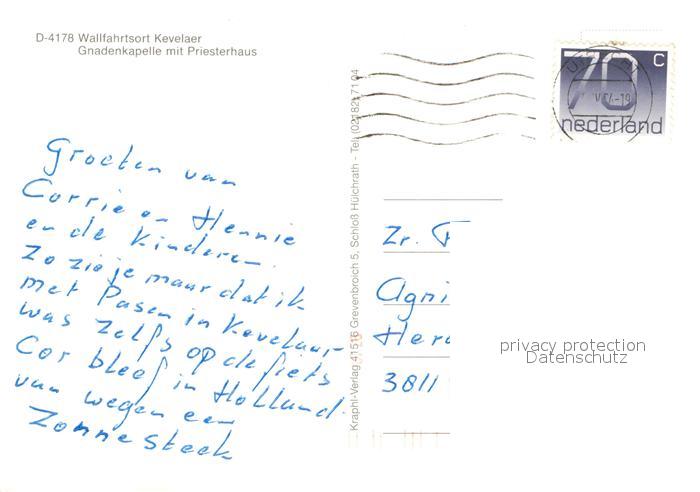 D-4178 Wallfahrtsort Kevelaer
Gnadenkapelle mit Priesterhaus
Groeten van
Corrie en Hennie
en de kinderen.
Zo zie je maar dat ik
met Pasen in Kevelaer
was zelfs op de fiets
Cor bleef in Holland
van wegen een
Zonnesteek
Kraphl-Verlag 41516 Grevenbroich 5, Schloß Hülchrath - Tel. (02182) 71 04
70 c
nederland
Zr. F
Agni
Her
3811
privacy protection
Datenschutz